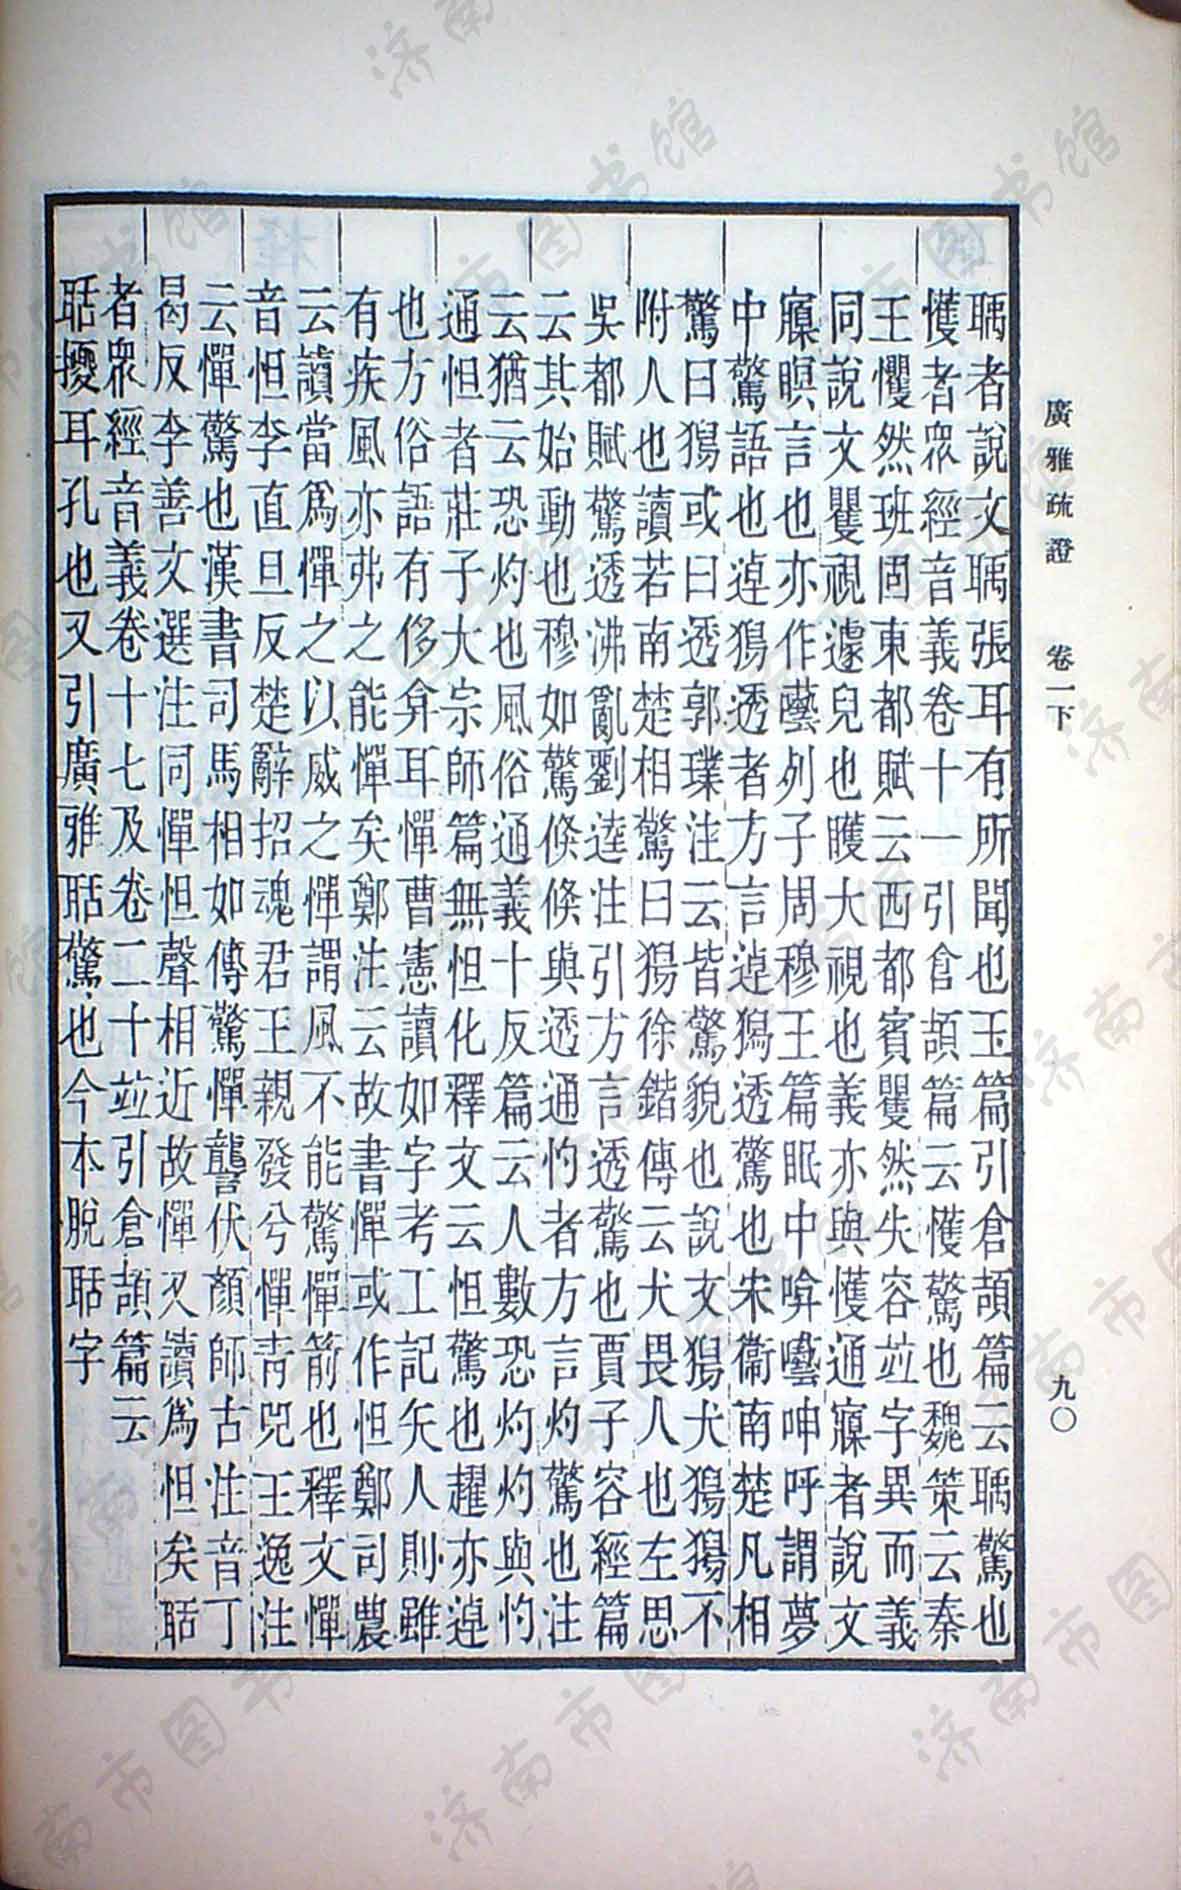 廣雅疏證　卷一下　九〇
聥者說文聥張耳有所聞也玉篇引倉頡篇云聥驚也
㦜者眾經音義卷十一引倉頡篇云㦜驚也魏策云秦
王戄然班固東都賦云西都賓矍然失容竝字異而義
同說文矍視遽皃也矆大視也義亦與㦜通㝱者說文
㝱瞑言也亦作囈列子周穆王篇眠中啽囈呻呼謂夢
中驚語也逴獡透者方言逴獡透驚也宋衞南楚凡相
驚曰獡或曰透郭璞注云皆驚貌也說文獡犬獡獡不
附人也讀若南楚相驚曰獡徐鍇傳云犬畏人也左思
吳都賦驚透沸亂劉逵注引方言透驚也賈子容經篇
云其始動也穆如驚倏倏與透通灼者方言灼驚也注
云猶云恐灼也風俗通義十反篇云人數恐灼灼與灼
通怛者莊子大宗師篇無怛化釋文云怛驚也趯亦逴
也方俗語有侈弇耳憚曹憲讀如字考工記矢人則雖
有疾風亦弗之能憚矣鄭注云故書憚或作怛鄭司農
云讀當爲憚之以威之憚謂風不能驚憚箭也釋文憚
音怛李直旦反楚辭招魂君王親發兮憚青兕王逸注
云憚驚也漢書司馬相如傳驚憚讋伏顏師古注音丁
曷反李善文選注同憚怛聲相近故憚又讀爲怛矣聒
者眾經音義卷十七及卷二十竝引倉頡篇云
聒擾耳孔也又引廣雅聒驚也今本脫聒字